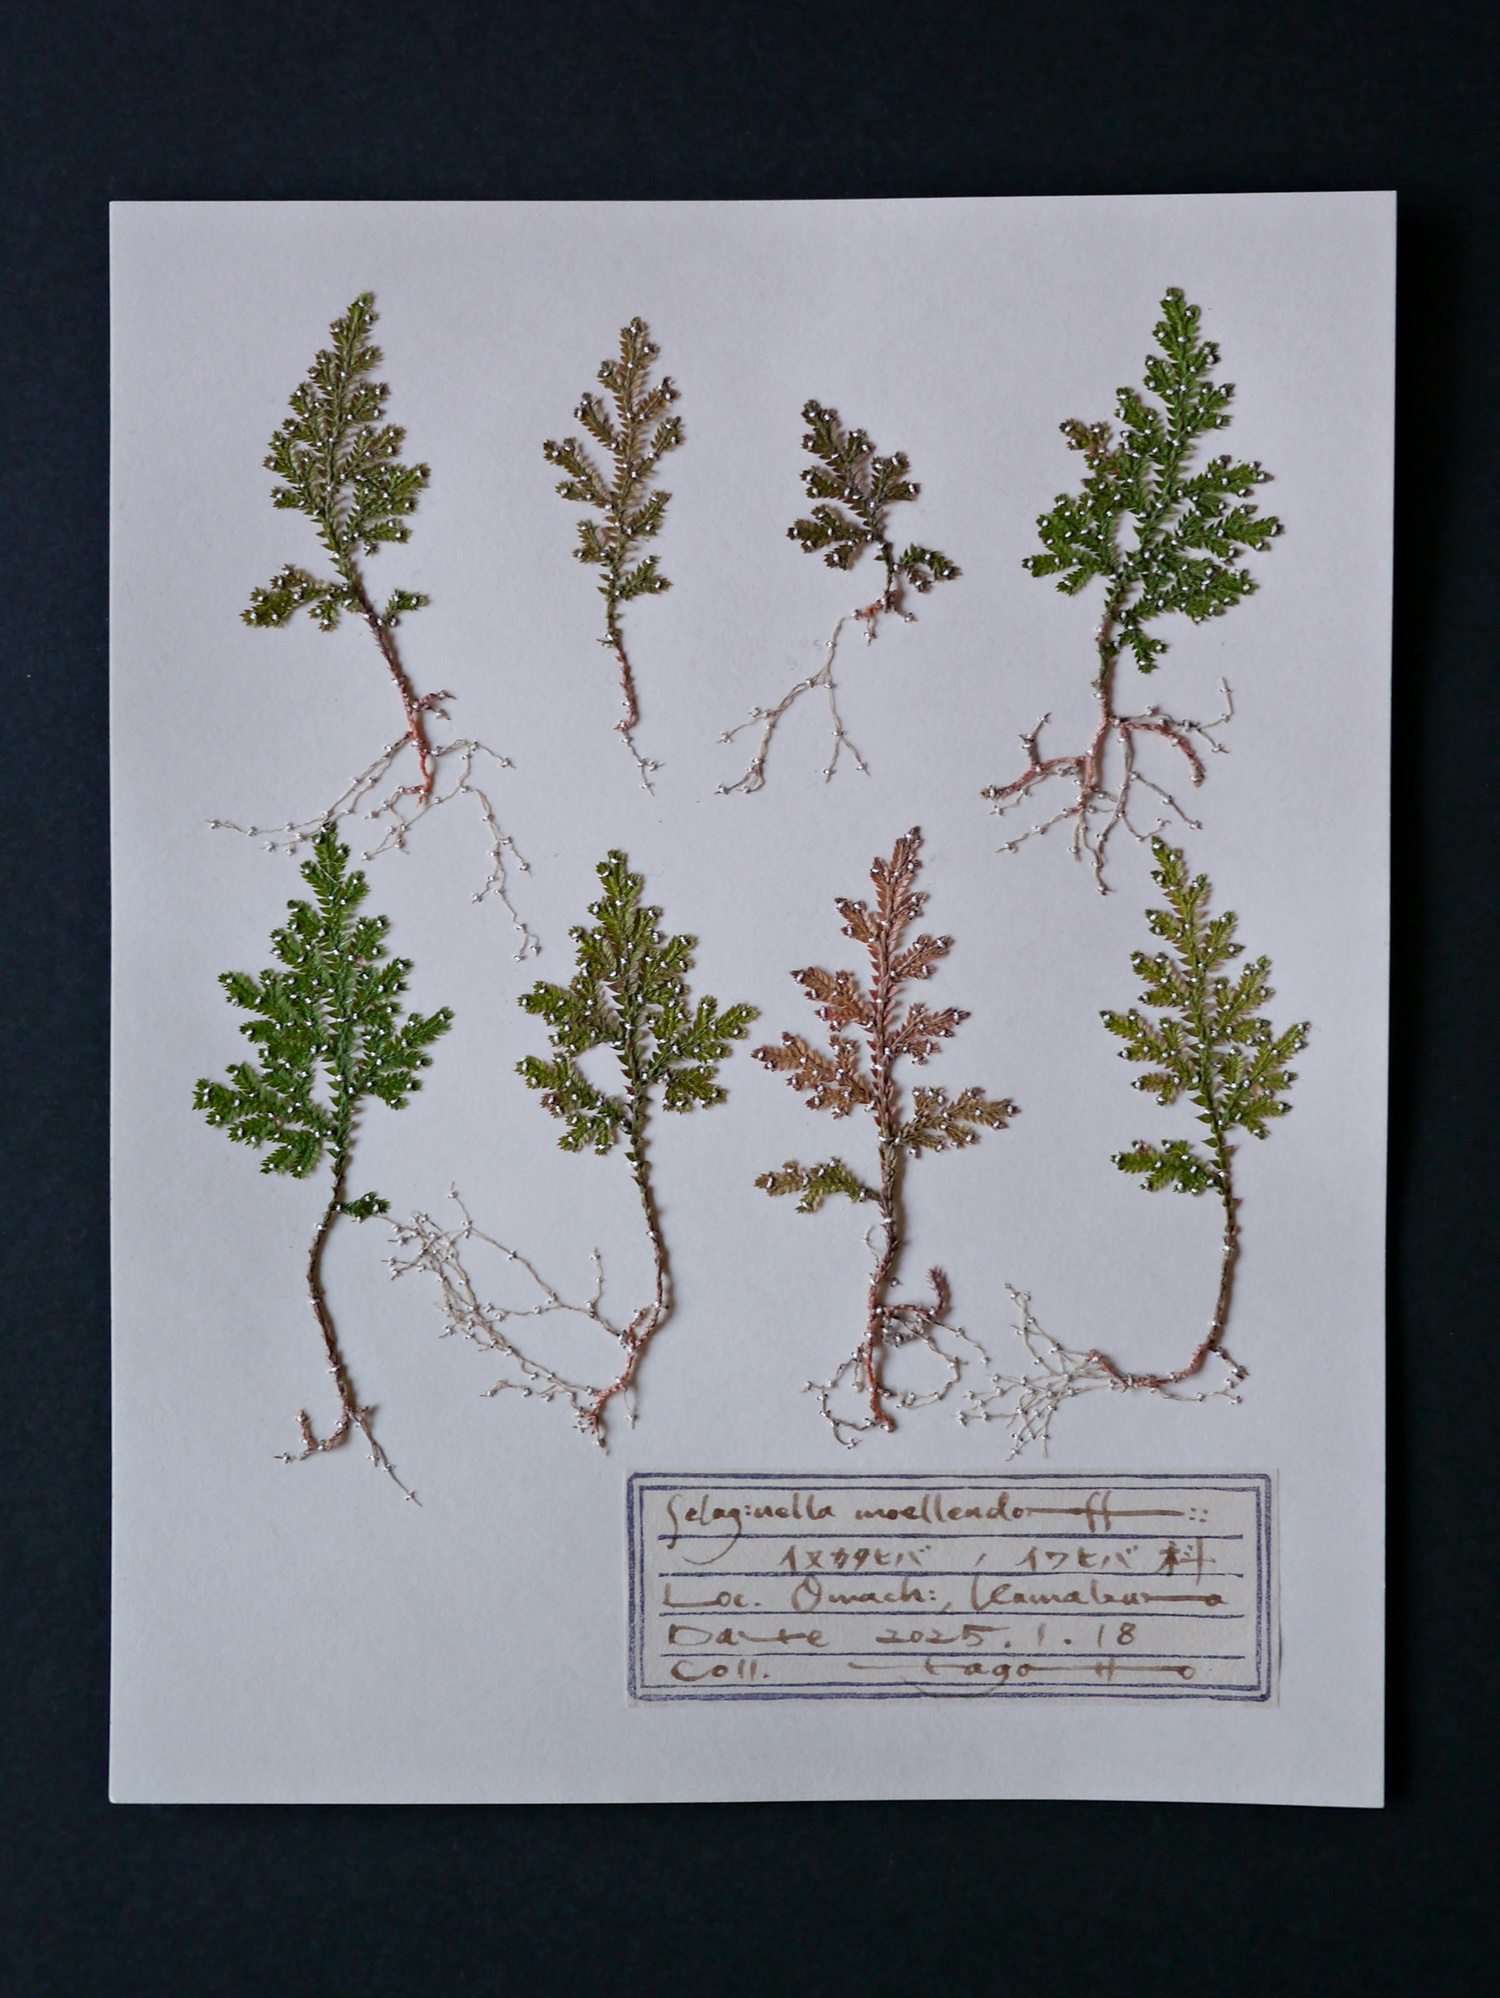 Selaginella moellendorffii
イヌカタヒバ , イワヒバ科
Loc. Omachi, Kamakura
Date 2025.1.18
Coll.